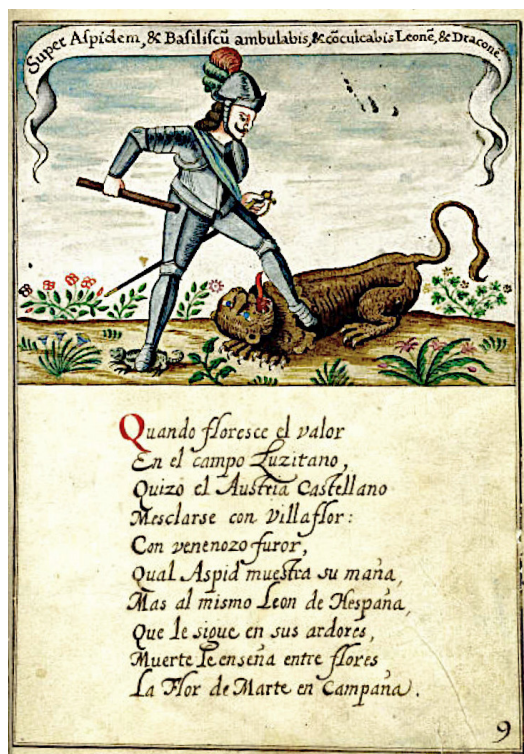 Super Aspidem, & Basiliscũ ambulabis, & cõculcabis Leonẽ, & Draconẽ.
Quando floresce el valor
En el campo Luzitano,
Quizo el Austria Castellano
Mesclarse con Villaflor:
Con venenozo furor,
Qual Aspid muestra su maña,
Mas al mismo Leon de Hespaña,
Que le sigue en sus ardores,
Muerte le enseña entre flores
La Flor de Marte en Campaña.
9